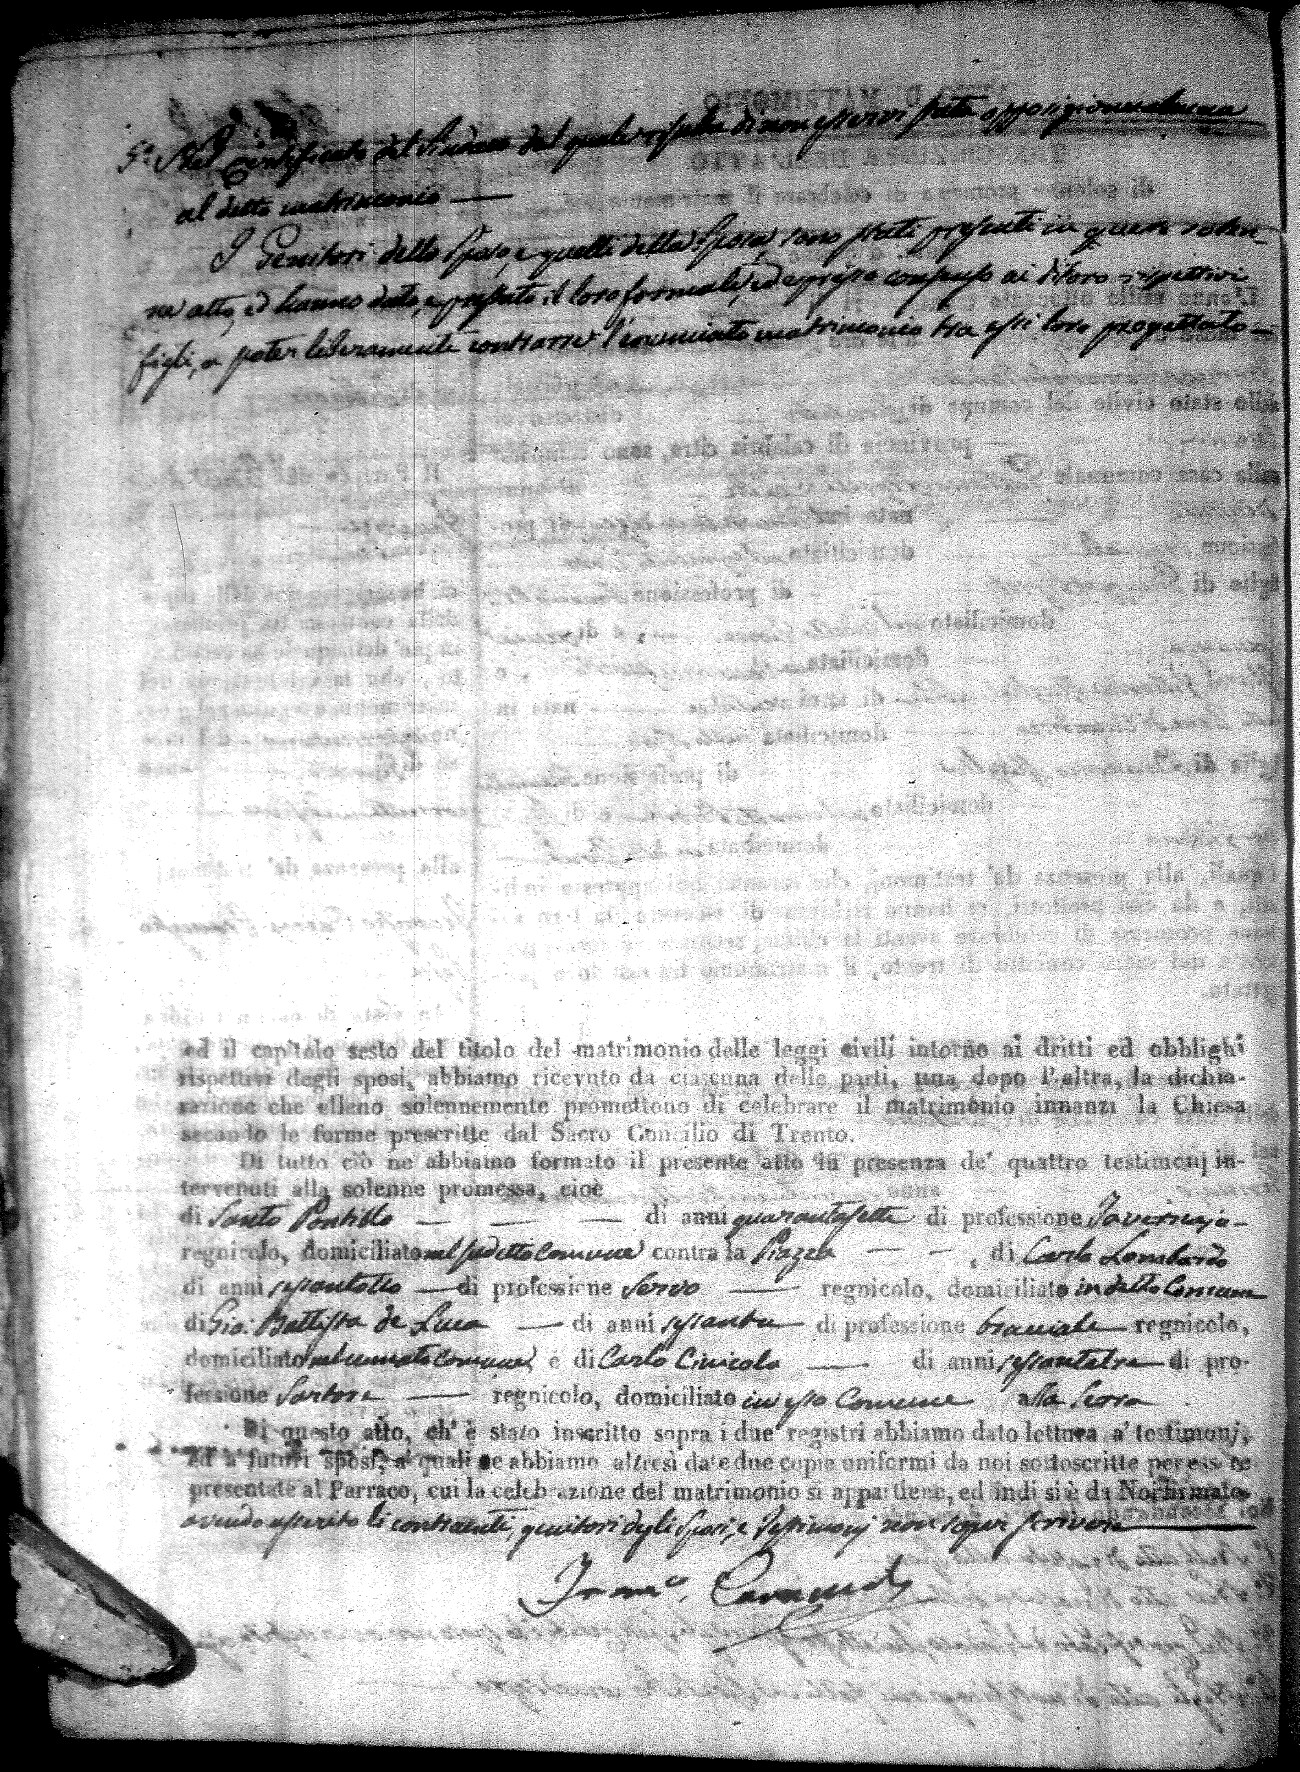 5.° Nel Certificato del Sindaco dal quale risulta di non essersi fatta opposizione alcuna
al detto matrimonio —
I Genitori dello Sposo, e quelli della Sposa, sono stati presenti in questo solen-
ne atto, ed hanno dato, e prestato il loro formale, ed espresso consenso ai di loro rispettivi
figli, a poter liberamente contrarre l'enunciato matrimonio tra essi loro progettato —
ed il capitolo sesto del titolo del matrimonio delle leggi civili intorno ai dritti ed obblighi
rispettivi degli sposi, abbiamo ricevuto da ciascuna delle parti, una dopo l'altra, la dichia-
razione che elleno solennemente promettono di celebrare il matrimonio innanzi la Chiesa
secondo le forme prescritte dal Sacro Concilio di Trento.
Di tutto ciò ne abbiamo formato il presente atto in presenza de' quattro testimonj in-
tervenuti alla solenne promessa, cioè
di Santo Pontillo — — — di anni quarantasette di professione Tavernajo —
regnicolo, domiciliato nel sudetto Comune contra la Piazza — — , di Carlo Lombardo
di anni sessantotto — di professione Servo — regnicolo, domiciliato in detto Comune
di Gio: Battista de Luca — di anni sessanta — di professione bracciale — regnicolo,
domiciliato nel Comune, e di Carlo Civicola — di anni sessantatre — di pro-
fessione Sartore — regnicolo, domiciliato in esso Comune alla Serra
Di questo atto, ch' è stato inscritto sopra i due registri abbiamo dato lettura a' testimonj,
ed a' futuri sposi, a' quali ne abbiamo altresì date due copie uniformi da noi sottoscritte per essere
presentate al Parroco, cui la celebrazione del matrimonio si appartiene, ed indi si è da Noi firmato
avendo asserito li contraenti, genitori degli Sposi, e Testimonj non saper scrivere —